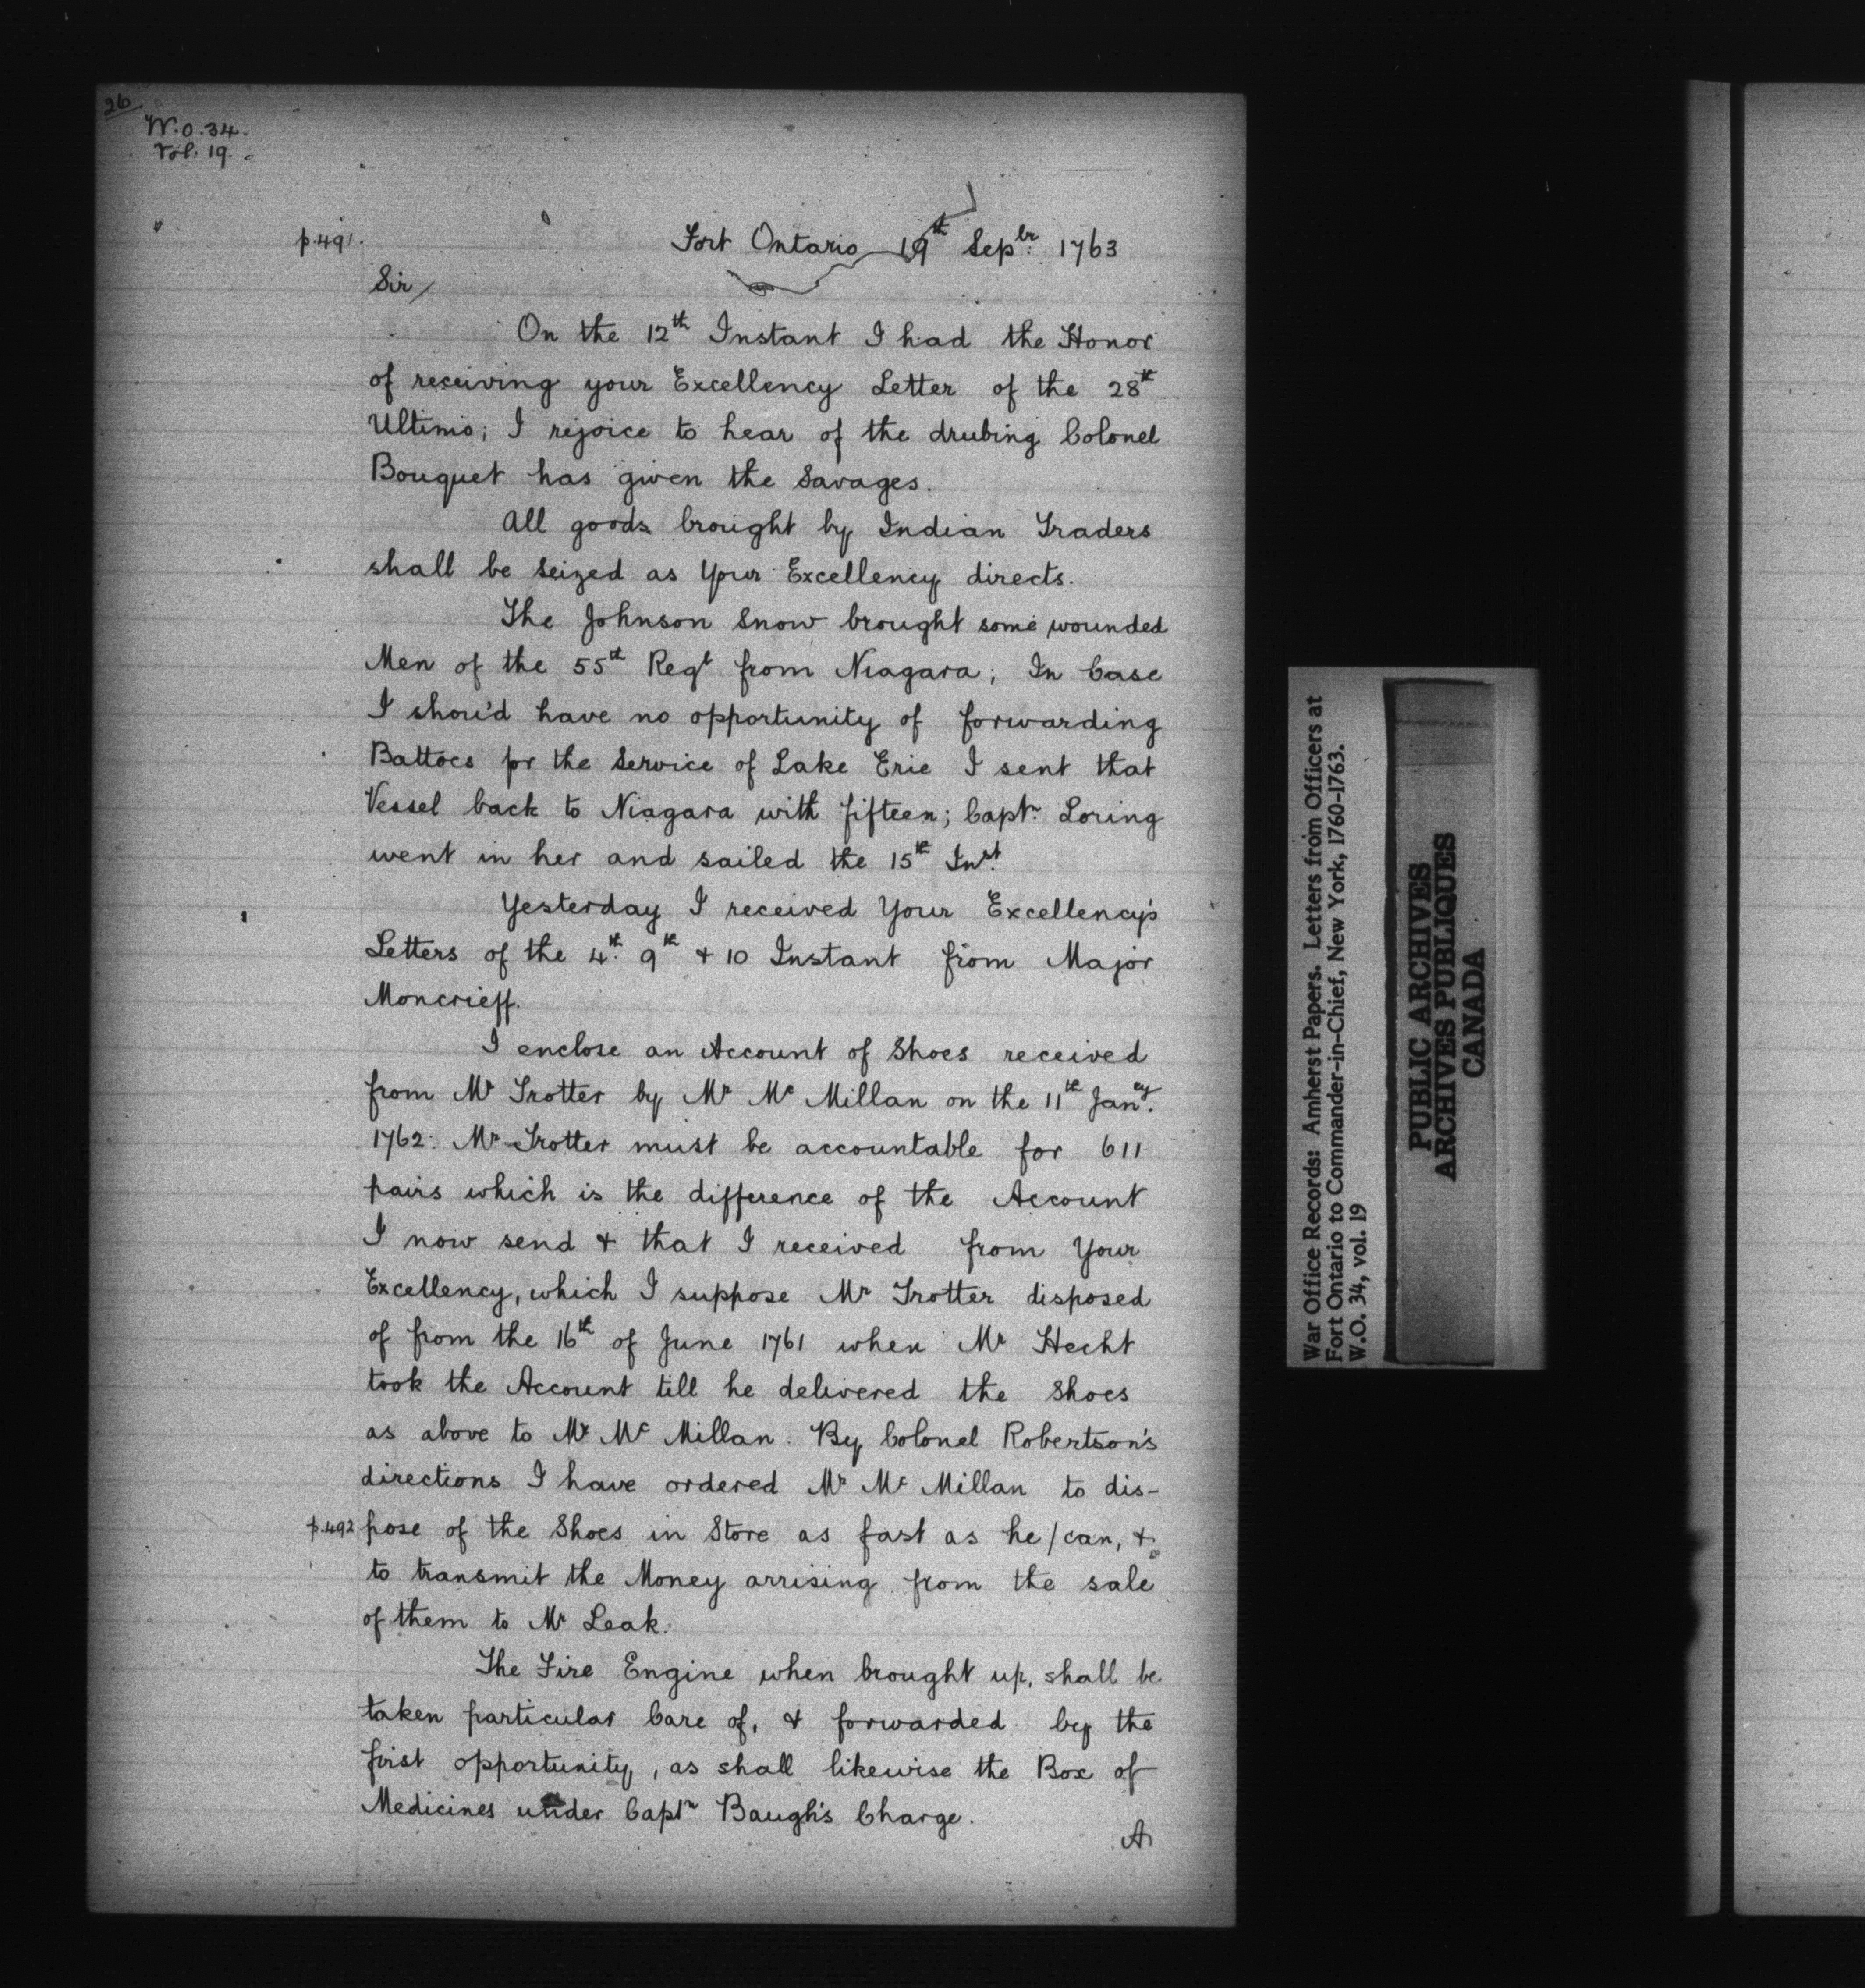 26
W.O. 34.
Vol. 19.
p.491.
Fort Ontario 19th Sepbr. 1763
Sir/
On the 12th Instant I had the Honor
of receiving your Excellency Letter of the 28th
Ultimo; I rejoice to hear of the drubing Colonel
Bouquet has given the Savages.
All goods brought by Indian Traders
shall be seized as Your Excellency directs.
The Johnson Snow brought some wounded
Men of the 55th Regt from Niagara; In Case
I shou'd have no opportunity of forwarding
Battoes for the Service of Lake Erie I sent that
Vessel back to Niagara with fifteen; Captn. Loring
went in her and sailed the 15th Inst.
Yesterday I received Your Excellency's
Letters of the 4th. 9th & 10 Instant from Major
Moncrieff.
I enclose an Account of Shoes received
from Mr Trotter by Mr Mc Millan on the 11th Janry.
1762. Mr Trotter must be accountable for 611
pairs which is the difference of the Account
I now send & that I received from Your
Excellency, which I suppose Mr Trotter disposed
of from the 16th of June 1761 when Mr Hecht
took the Account till he delivered the Shoes
as above to Mr Mc Millan. By Colonel Robertson's
directions I have ordered Mr Mc Millan to dis-
p.492 pose of the Shoes in Store as fast as he/can, &
to transmit the Money arrising from the sale
of them to Mr Leak.
The Fire Engine when brought up, shall be
taken particular Care of, & forwarded by the
first opportunity, as shall likewise the Box of
Medicines under Captn Baugh's Charge.
A
War Office Records: Amherst Papers. Letters from Officers at
Fort Ontario to Commander-in-Chief, New York, 1760-1763.
W.O. 34, vol. 19
PUBLIC ARCHIVES
ARCHIVES PUBLIQUES
CANADA